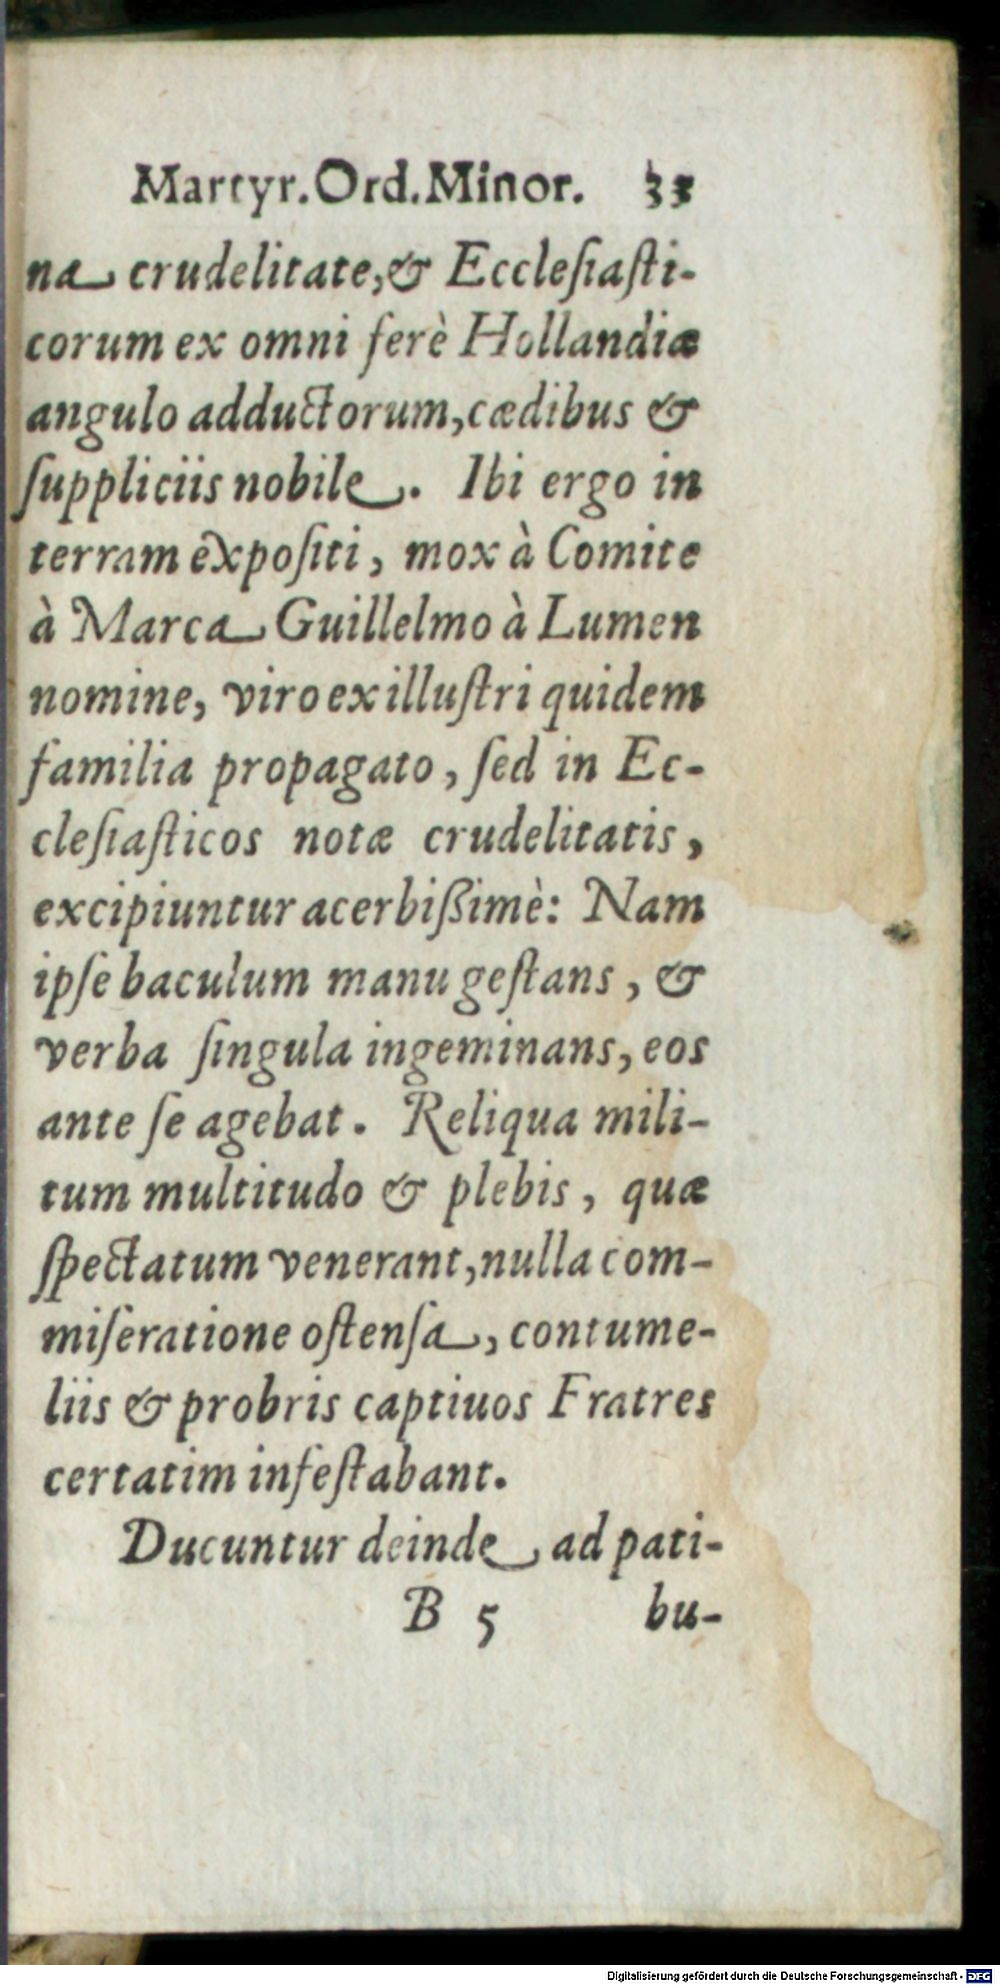 Martyr. Ord. Minor. 33
na crudelitate, & Ecclesiasti-
corum ex omni ferè Hollandiæ
angulo adductorum, cædibus &
suppliciis nobile. Ibi ergo in
terram expositi, mox à Comite
à Marca Guillelmo à Lumen
nomine, viro ex illustri quidem
familia propagato, sed in Ec-
clesiasticos notæ crudelitatis,
excipiuntur acerbißimè: Nam
ipse baculum manu gestans, &
verba singula ingeminans, eos
ante se agebat. Reliqua mili-
tum multitudo & plebis, quæ
spectatum venerant, nulla com-
miseratione ostensa, contume-
liis & probris captiuos Fratres
certatim infestabant.
Ducuntur deinde ad pati-
B 5 bu-
Digitalisierung gefördert durch die Deutsche Forschungsgemeinschaft - DFG